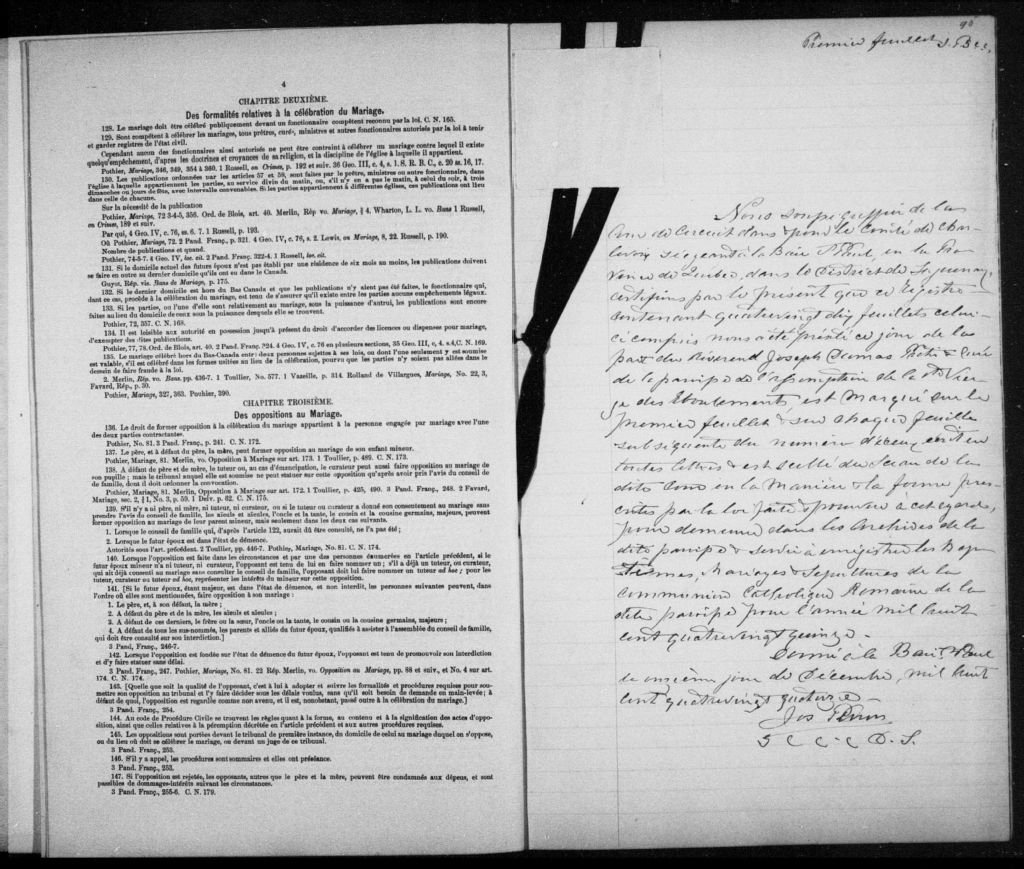 4
CHAPITRE DEUXIÈME.
Des formalités relatives à la célébration du Mariage.
128. Le mariage doit être célébré publiquement devant un fonctionnaire compétent reconnu par la loi. C. N. 165.
129. Sont compétent à célébrer les mariages, tous prêtres, curés, ministres et autres fonctionnaires autorisés par la loi à tenir
et garder registres de l'état civil.
Cependant aucun des fonctionnaires ainsi autorisés ne peut être contraint à célébrer un mariage contre lequel il existe
quelqu'empêchement, d'après les doctrines et croyances de sa religion, et la discipline de l'église à laquelle il appartient.
Pothier, Mariage, 346, 349, 354 à 360. 1 Russell, on Crimes, p. 192 et suiv. 36 Geo. III, c. 4, s. 1. S. R. B. C., c. 20 ss. 16, 17.
130. Les publications ordonnées par les articles 57 et 58, sont faites par le prêtre, ministres ou autre fonctionnaire, dans
l'église à laquelle appartiennent les parties, au service divin du matin, ou, s'il n'y en a pas le matin, à celui du soir, à trois
dimanches ou jours de fête, avec intervalle convenables. Si les parties appartiennent à différentes églises, ces publications ont lieu
dans celle de chacune.
Sur la nécessité de la publication
Pothier, Mariage, 72 3-4-5, 356. Ord. de Blois, art. 40. Merlin, Rép vo. Mariage, § 4. Wharton, L. L. vo. Bans 1 Russell,
on Crimes, 189 et suiv.
Par qui, 4 Geo. IV, c. 76, ss. 6. 7. 1 Russell, p. 193.
Où Pothier, Mariage, 72. 2 Pand. Franç., p. 321. 4 Geo. IV, c. 76, s. 2. Lewis, on Mariage, 8, 22. Russell, p. 190.
Nombre de publications et quand.
Pothier, 74-5-7. 4 Geo. IV, loc. cit. 2 Pand. Franç. 322-4. 1 Russell, loc. cit.
131. Si le domicile actuel des futurs époux n'est pas établi par une résidence de six mois au moins, les publications doivent
se faire en outre au dernier domicile qu'ils ont eu dans le Canada.
Guyot, Rép. vis. Bans de Mariage, p. 175.
132. Si le dernier domicile est hors du Bas Canada et que les publications n'y aient pas été faites, le fonctionnaire qui,
dans ce cas, procède à la célébration du mariage, est tenu de s'assurer qu'il existe entre les parties aucuns empêchements légaux.
133. Si les parties, ou l'une d'elle sont relativement au mariage, sous la puissance d'autrui, les publications sont encore
faites au lieu du domicile de ceux sous la puissance desquels elle se trouvent.
Pothier, 72, 357. C. N. 168.
134. Il est loisible aux autorité en possession jusqu'à présent du droit d'accorder des licences ou dispenses pour mariage,
d'exempter des dites publications.
Pothier, 77, 78. Ord. de Blois, art. 40. 2 Pand Franç. 324. 4 Geo. IV, c. 76 en plusieurs sections, 35 Geo. III, c, 4. s.4, C. N. 169.
135. Le mariage célébré hors du Bas-Canada entre deux personnes sujettes à ses lois, ou dont l'une seulement y est soumise
est valable, s'il est célébré dans les formes usitées au lieu de la célébration, pourvu que les parties n'y soient pas allées dans le
dessein de faire fraude à la loi.
2. Merlin, Rép. vo. Bans. pp. 436-7. 1 Toullier, No. 577. 1 Vazeille, p. 314. Rolland de Villargues, Mariage, No. 22, 3,
Favard, Rép., p. 30.
Pothier, Mariage, 327, 363. Pouhier, 390.
CHAPITRE TROISIÈME.
Des oppositions au Mariage.
136. Le droit de former opposition à la célébration du mariage appartient à la personne engagée par mariage avec l'une
des deux parties contractantes.
Pothier, No. 81. 3 Pand. Franç., p. 241. C. N. 172.
137. Le père, et à défaut du père, la mère, peut former opposition au mariage de son enfant mineur.
Pothier, Mariage, 81. Merlin, Opposition à Mariage sur art. 173. 1 Toullier, p. 489. C. N. 173.
138. A défaut de père et de mère, le tuteur ou, au cas d'émancipation, le curateur peut aussi faire opposition au mariage de
son pupille ; mais le tribunal auquel elle est soumise ne peut statuer sur cette opposition qu'après avoir pris l'avis du conseil de
famille, dont il doit ordonner la convocation.
Pothier, Mariage, 81. Merlin, Opposition à Mariage sur art. 172. 1 Toullier, p. 425, 490. 3 Pand. Franç., 248. 2 Favard,
Mariage, sec. 2, § 1, No. 3, p. 59. 1 Delv. p. 62. C. N. 175.
139. S'il n'y a ni père, ni mère, ni tuteur, ni curateur, ou si le tuteur ou curateur a donné son consentement au mariage sans
prendre l'avis du conseil de famille, les aïeuls et aïeules, l'oncle et la tante, le cousin et la cousine germains, majeurs, peuvent
former opposition au mariage de leur parent mineur, mais seulement dans les deux cas suivants.
1. Lorsque le conseil de famille qui, d'après l'article 122, aurait dû être consulté, ne l'a pas été ;
2. Lorsque le futur époux est dans l'état de démence.
Autorités sous l'art. précédent. 2 Toullier, pp. 446-7. Pothier, Mariage, No. 81. C. N. 174.
140. Lorsque l'opposition est faite dans les circonstances et par une des personnes énumérées en l'article précédent, si le
futur époux mineur n'a ni tuteur, ni curateur, l'opposant est tenu de lui en faire nommer un ; s'il a déjà un tuteur, ou curateur,
qui ait déjà consenti au mariage sans consulter le conseil de famille, l'opposant doit lui faire nommer un tuteur ad hoc ; pour les
tuteur, curateur ou tuteur ad hoc, représenter les intérêts du mineur sur cette opposition.
141. [Si le futur époux, étant majeur, est dans l'état de démence, et non interdit, les personnes suivantes peuvent, dans
l'ordre où elles sont mentionnées, faire opposition à son mariage :
1. Le père, et, à son défaut, la mère ;
2. A défaut du père et de la mère, les aïeuls et aïeules ;
3. A défaut de ces derniers, le frère ou la sœur, l'oncle ou la tante, le cousin ou la cousine germains, majeurs ;
4. A défaut de tous les sus-nommés, les parents et alliés du futur époux, qualifiés à assister à l'assemblée du conseil de famille,
qui doit être consulté sur son interdiction.]
3 Pand, Franç., 246-7.
142. Lorsque l'opposition est fondée sur l'état de démence du futur époux, l'opposant est tenu de promouvoir son interdiction
et d'y faire statuer sans délai.
3 Pand Franç., 247. Pothier, Mariage, No. 81. 22 Rép. Merlin, vo. Opposition au Mariage, pp. 88 et suiv., et No. 4 sur art.
174. C. N. 174.
143. [Quelle que soit la qualité de l'opposant, c'est à lui à adopter et suivre les formalités et procédures requises pour sou-
mettre son opposition au tribunal et l'y faire décider sous les délais voulus, sans qu'il soit besoin de demande en main-levée ; à
défaut de quoi, l'opposition est regardée comme non avenu, et il est, nonobstant, passé outre à la célébration du mariage.]
3 Pand. Franç., 254.
144. Au code de Procédure Civile se trouvent les règles quant à la forme, au contenu et à la signification des actes d'oppo-
sition, ainsi que celles relatives à la péremption décrétée en l'article précédent et aux autres procédures requises.
145. Les oppositions sont portées devant le tribunal de première instance, du domicile de celui au mariage duquel on s'oppose,
ou du lieu où doit se célébrer le mariage, ou devant un juge de ce tribunal.
3 Pand. Franç., 253.
146. S'il y a appel, les procédures sont sommaires et elles ont préséance.
3 Pand. Franç., 253.
147. Si l'opposition est rejetée, les opposants, autres que le père et la mère, peuvent être condamnés aux dépens, et sont
passibles de dommages-intérêts suivant les circonstances.
3 Pand. Franç., 255-6. C. N. 179.
90
Premier feuillet
Nous soussigné greffier de la
Cour de Circuit dans & pour le Comté de Char-
levoix siégeant à la Baie St Paul, en la Pro-
vince de Québec, dans le District de Saguenay,
certifions par le présent que ce Registre
contenant quatrevingt dix feuillets celui-
ci compris nous a été présenté ce jour de la
part du Révérend Joseph Dumas Ptre & Curé
de la paroisse de l'Assomption de la Ste Vier-
ge des Eboulements, est marqué sur le
premier feuillet & sur chaque feuillet
subséquents du numéro d'iceux écrit en
toutes lettres & est scellé du Sceau de la
dite Cour en la Manière & la forme pres-
crites par la loi faite & pourvue à cet égard,
pour demeurer dans les Archives de la
dite paroisse & servir à enregistrer les Bap-
têmes, Mariages & Sépultures de la
communion Catholique Romaine de la
dite paroisse pour l'année mil huit
cent quatrevingt quinze.
Donné à la Baie St Paul
le onzième jour de Décembre, mil huit
cent quatrevingt quatorze
Jos